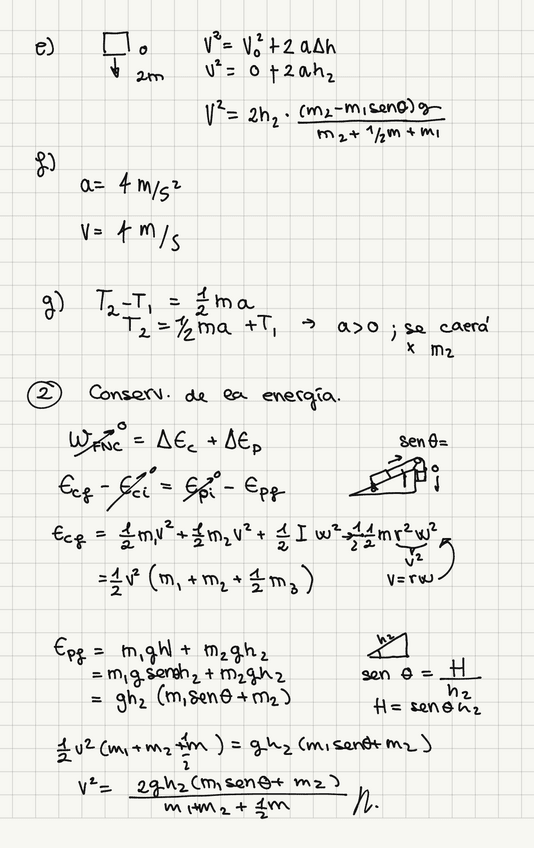 e) o 2m V² = V₀² + 2aΔh
V² = 0 + 2ah₂
V² = 2h₂ · (m₂ - m₁senθ)g / m₂ + 1/2m + m₁
f)
a = 4 m/s²
V = 4 m/s
g) T₂ - T₁ = 1/2 ma
T₂ = 1/2 ma + T₁ → a>0 ; se caerá
x m₂
② Conserv. de ea energía.
W_FNC⁰ = ΔEc + ΔEp
sen θ =
Ecf - Eci⁰ = Epi⁰ - Epf
Ecf = 1/2 m₁v² + 1/2 m₂v² + 1/2 I w² → 1/2 1/2 mr²w²
v²
= 1/2 v² (m₁ + m₂ + 1/2 m₃)
v = rw
Epf = m₁gH + m₂gh₂
= m₁g senθh₂ + m₂gh₂
= gh₂ (m₁senθ + m₂)
h₂
sen θ = H / h₂
H = senθ h₂
1/2 v² (m₁ + m₂ + 1/2 m) = gh₂ (m₁senθ + m₂)
v² = 2gh₂ (m₁senθ + m₂) / m₁ + m₂ + 1/2 m